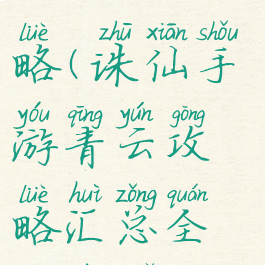 lüè zhū xiān shǒu
略(诛仙手
yóu qīng yún gōng
游青云攻
lüè huì zǒng quán
略汇总全